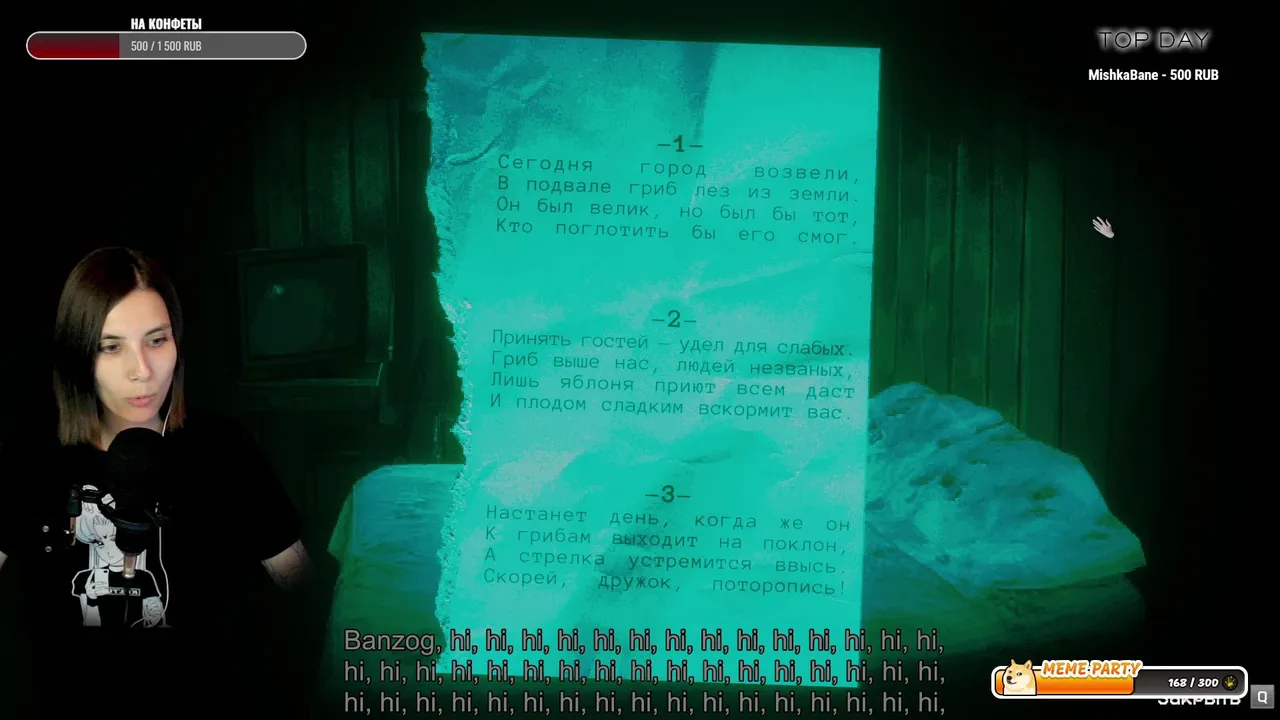 НА КОНФЕТЫ
500 / 1 500 RUB
TOP DAY
MishkaBane - 500 RUB
—1—
Сегодня город возвели,
В подвале гриб лез из земли.
Он был велик, но был бы тот,
Кто поглотить бы его смог.
—2—
Принять гостей — удел для слабых.
Гриб выше нас, людей незваных,
Лишь яблоня приют всем даст
И плодом сладким вскормит вас.
—3—
Настанет день, когда же он
К грибам выходит на поклон,
А стрелка устремится ввысь.
Скорей, дружок, поторопись!
Banzog, hi, hi, hi, hi, hi, hi, hi, hi, hi, hi, hi, hi, hi, hi,
hi, hi, hi, hi, hi, hi, hi, hi, hi, hi, hi, hi, hi, hi, hi, hi, hi,
hi, hi, hi, hi, hi, hi, hi, hi, hi, hi, hi, hi, hi, hi, hi, hi, hi,
MEME PARTY
168 / 300
Закрыть Q